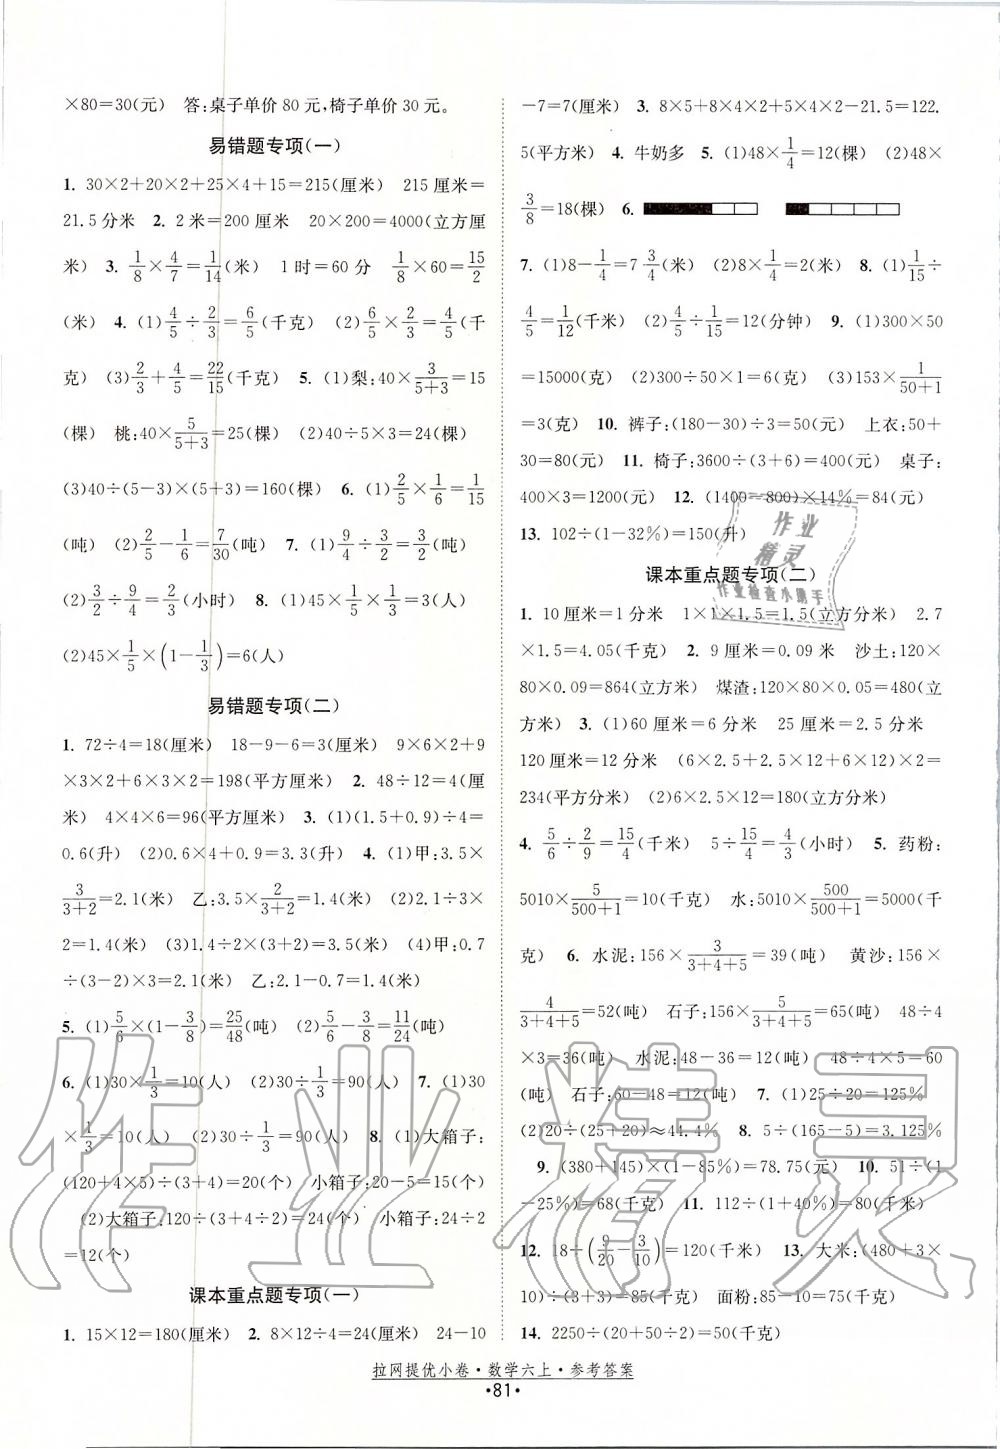 ×80=30(元)　答:桌子单价 80 元,椅子单价 30 元。
易错题专项(一)
1. 30×2+20×2+25×4+15=215(厘米)　215 厘米=
21.5 分米　2. 2 米=200 厘米　20×200=4000(立方厘
米)　3. 1/8×4/7=1/14(米)　1 时=60 分　1/8×60=15/2
(米)　4. (1)4/5÷2/3=6/5(千克)　(2)6/5×2/3=4/5(千
克)　(3)2/3+4/5=22/15(千克)　5. (1)梨:40×3/(5+3)=15
(棵)　桃:40×5/(5+3)=25(棵)　(2)40÷5×3=24(棵)
(3)40÷(5-3)×(5+3)=160(棵)　6. (1)2/5×1/6=1/15
(吨)　(2)2/5-1/6=7/30(吨)　7. (1)9/4÷3/2=3/2(吨)
(2)3/2÷9/4=2/3(小时)　8. (1)45×1/5×1/3=3(人)
(2)45×1/5×(1-1/3)=6(人)
易错题专项(二)
1. 72÷4=18(厘米)　18-9-6=3(厘米)　9×6×2+9
×3×2+6×3×2=198(平方厘米)　2. 48÷12=4(厘
米)　4×4×6=96(平方厘米)　3. (1)(1.5+0.9)÷4=
0.6(升)　(2)0.6×4+0.9=3.3(升)　4. (1)甲:3.5×
3/(3+2)=2.1(米)　乙:3.5×2/(3+2)=1.4(米)　(2)2.1÷3×
2=1.4(米)　(3)1.4÷2×(3+2)=3.5(米)　(4)甲:0.7
÷(3-2)×3=2.1(米)　乙:2.1-0.7=1.4(米)
5. (1)5/6×(1-3/8)=25/48(吨)　(2)5/6-3/8=11/24(吨)
6. (1)30×1/3=10(人)　(2)30÷1/3=90(人)　7. (1)30
×1/3=10(人)　(2)30÷1/3=90(人)　8. (1)大箱子:
(120+4×5)÷(3+4)=20(个)　小箱子:20-5=15(个)
(2)大箱子:120÷(3+4÷2)=24(个)　小箱子:24÷2
=12(个)
课本重点题专项(一)
1. 15×12=180(厘米)　2. 8×12÷4=24(厘米)　24-10
-7=7(厘米)　3. 8×5+8×4×2+5×4×2-21.5=122.
5(平方米)　4. 牛奶多　5. (1)48×1/4=12(棵)　(2)48×
3/8=18(棵)　6.
7. (1)8-1/4=7 3/4(米)　(2)8×1/4=2(米)　8. (1)1/15÷
4/5=1/12(千米)　(2)4/5÷1/15=12(分钟)　9. (1)300×50
=15000(克)　(2)300÷50×1=6(克)　(3)153×1/(50+1)
=3(克)　10. 裤子:(180-30)÷3=50(元)　上衣:50+
30=80(元)　11. 椅子:3600÷(3+6)=400(元)　桌子:
400×3=1200(元)　12. (1400-800)×14%=84(元)
13. 102÷(1-32%)=150(升)
作业
精灵
作业检查小助手
课本重点题专项(二)
1. 10 厘米=1 分米　1×1×1.5=1.5(立方分米)　2.7
×1.5=4.05(千克)　2. 9 厘米=0.09 米　沙土:120×
80×0.09=864(立方米)　煤渣:120×80×0.05=480(立
方米)　3. (1)60 厘米=6 分米　25 厘米=2.5 分米
120 厘米=12 分米　(6×2.5+2.5×12+6×12)×2=
234(平方分米)　(2)6×2.5×12=180(立方分米)
4. 5/6÷2/9=15/4(千米)　5÷15/4=4/3(小时)　5. 药粉:
5010×5/(500+1)=10(千克)　水:5010×500/(500+1)=5000(千
克)　6. 水泥:156×3/(3+4+5)=39(吨)　黄沙:156×
4/(3+4+5)=52(吨)　石子:156×5/(3+4+5)=65(吨)　48÷4
×3=36(吨)　水泥:48-36=12(吨)　48÷4×5=60
(吨)　石子:60-48=12(吨)　7. (1)25÷20=125%
(2)20÷(25+20)≈44.4%　8. 5÷(165-5)=3.125%
9. (380+145)×(1-85%)=78.75(元)　10. 51÷(1
-25%)=68(千克)　11. 112÷(1+40%)=80(千米)
12. 18÷(9/20-3/10)=120(千米)　13. 大米:(480+3×
10)÷(3+3)=85(千克)　面粉:85-10=75(千克)
14. 2250÷(20+50÷2)=50(千克)
拉网提优小卷·数学六上·参考答案
·81·
作业精灵